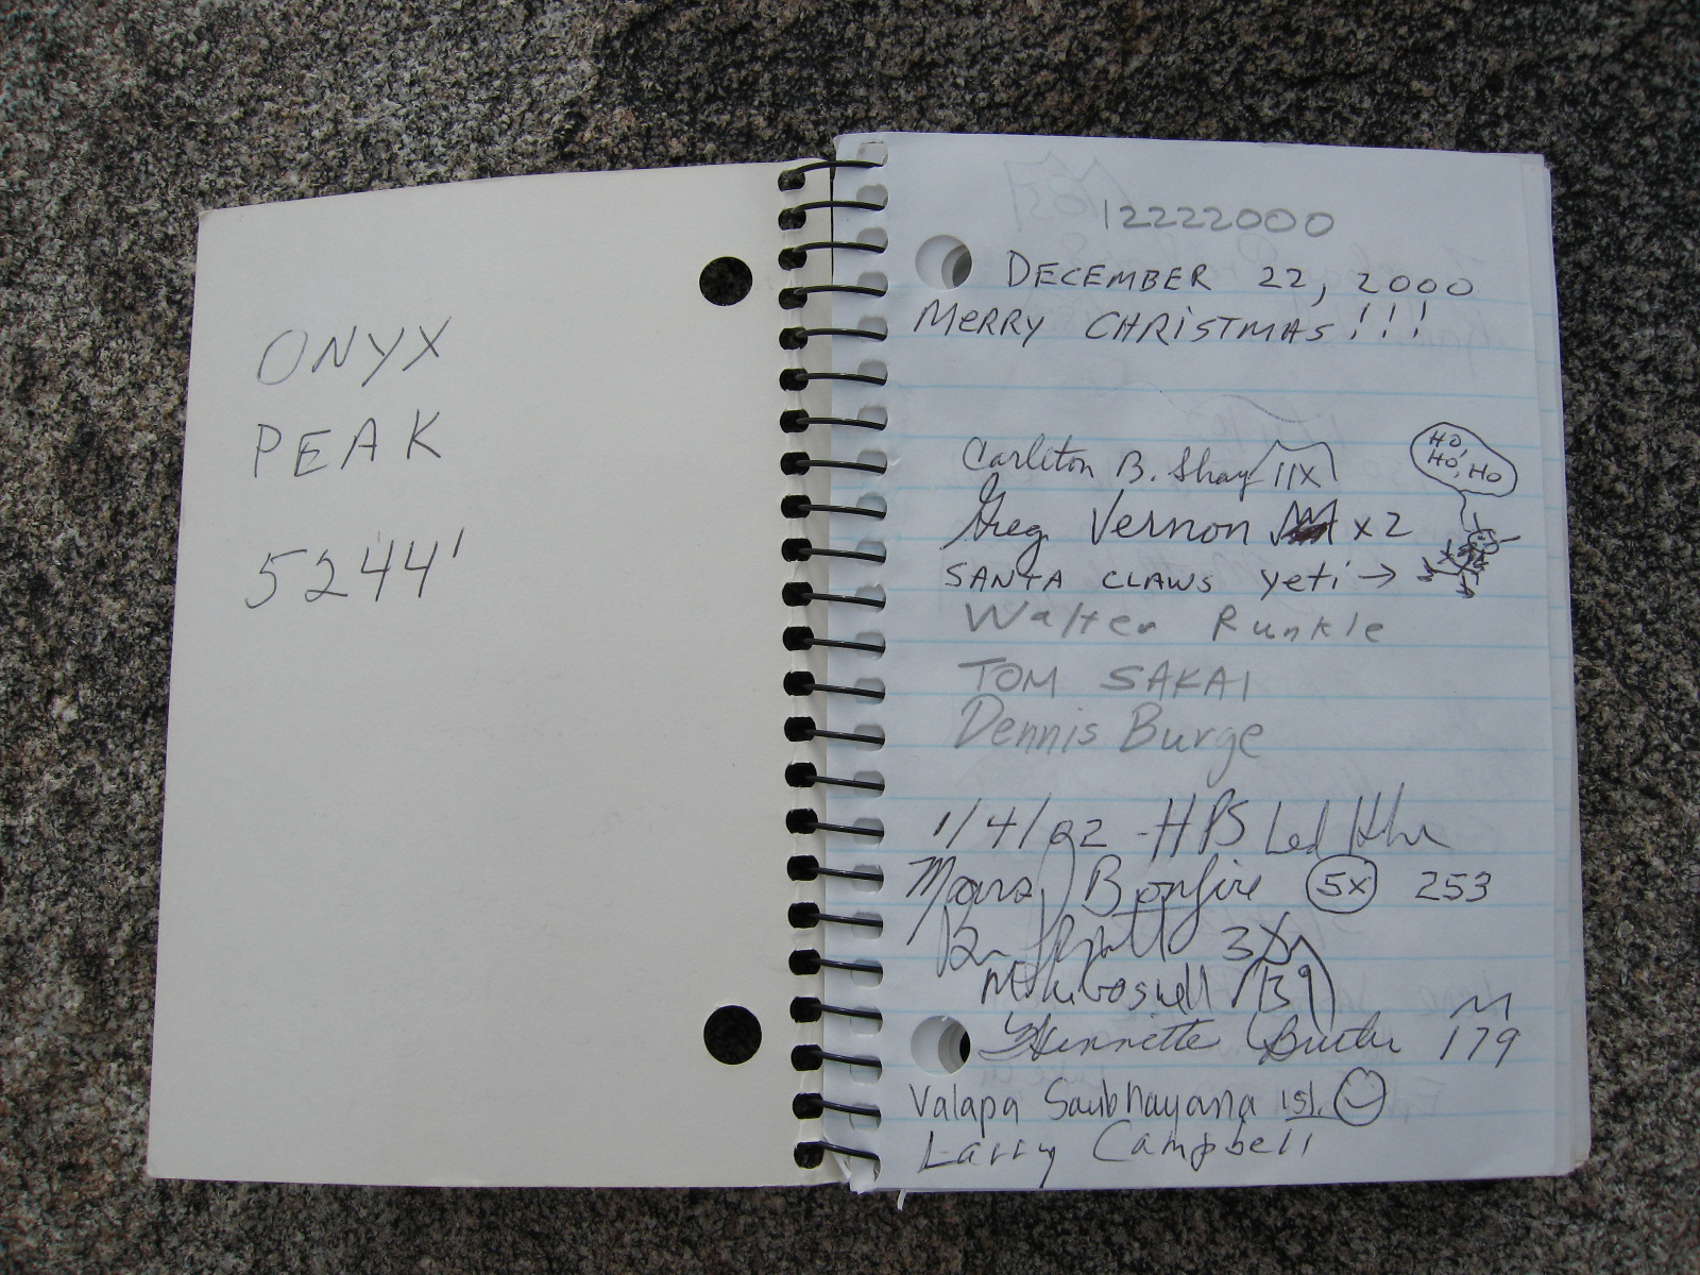 ONYX
PEAK
5244'
12222000
DECEMBER 22, 2000
MERRY CHRISTMAS!!!
HO,
HO, HO
Carleton B. Shay 11X
Greg Vernon x2
SANTA CLAWS yeti →
Walter Runkle
TOM SAKAI
Dennis Burge
1/4/02 - HPS Led
Mars Bonfire 5x 253
3X
139
M
Butler 179
Valapa Saubhayana 1st.
Larry Campbell